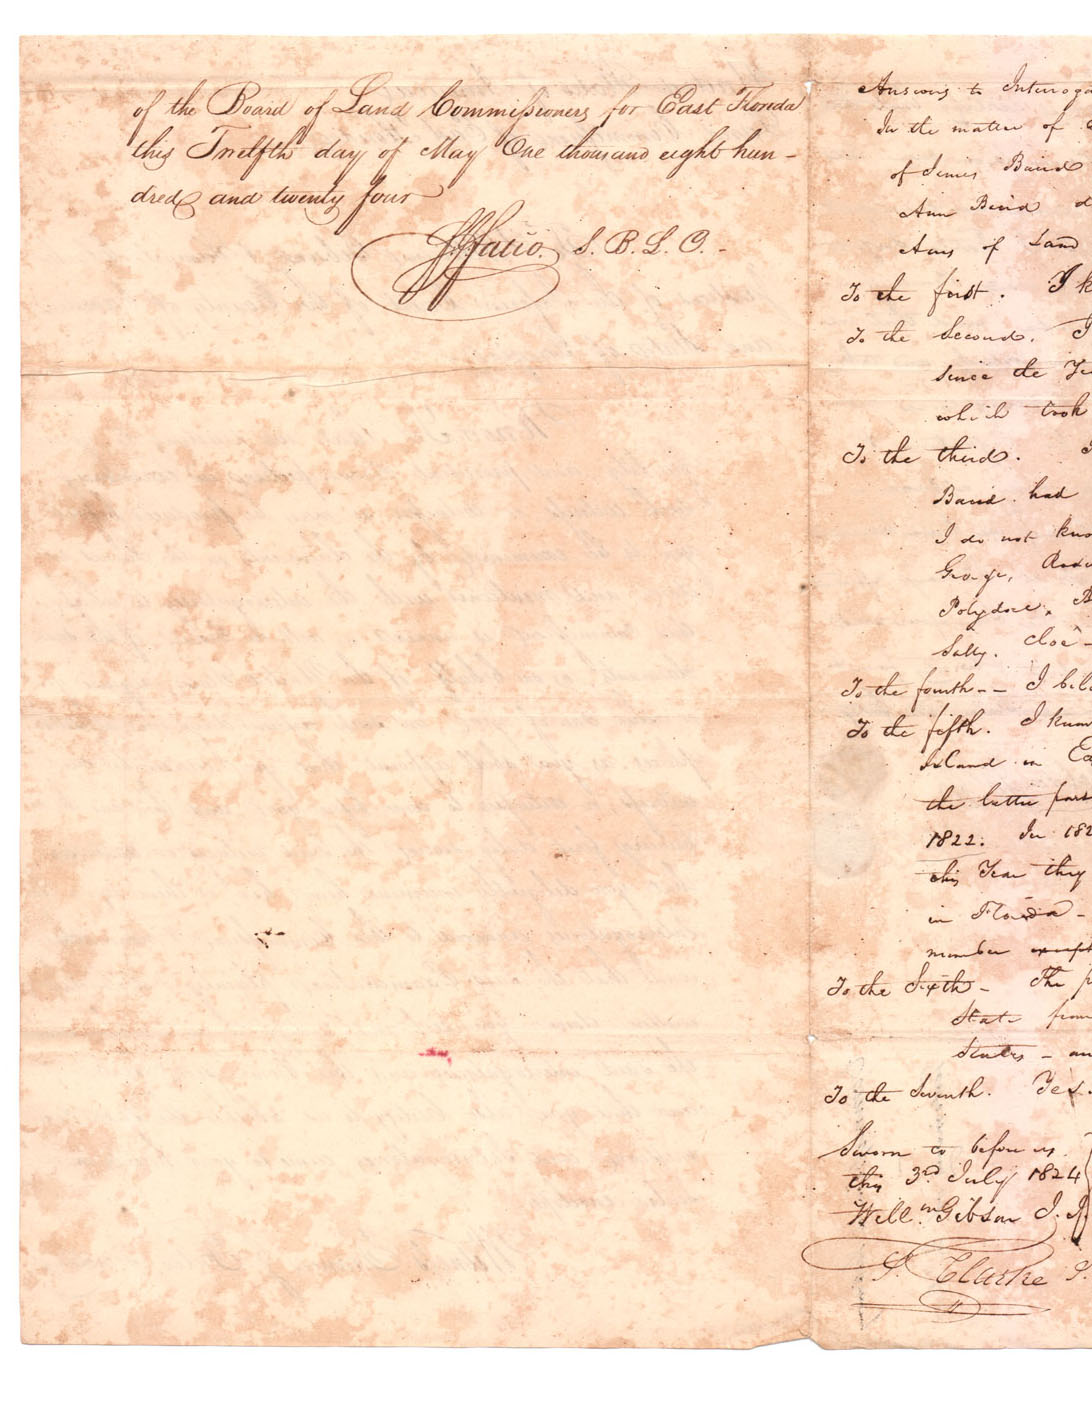 of the Board of Land Commissioners for East Florida
this Twelfth day of May One thousand eight hun-
dred and twenty four
S. B. L. O.
Answers to Interoga
In the matter of
of
Ann
Acres of Land
To the first. I k
To the Second. I
since the Ye
which took
To the third. I
Baird had
I do not kno
George,
Polydore, B
Sally. Cloe -
To the fourth -- I beli
To the fifth. I know
Island in Ea
the latter part
1822. In 182
this Year they
in Florida -
number except
To the Sixth - The p
State from
States - an
To the Seventh. Yes.
Sworn to before us
this 3rd July 1824
Willm Gibson J. P.
Clarke